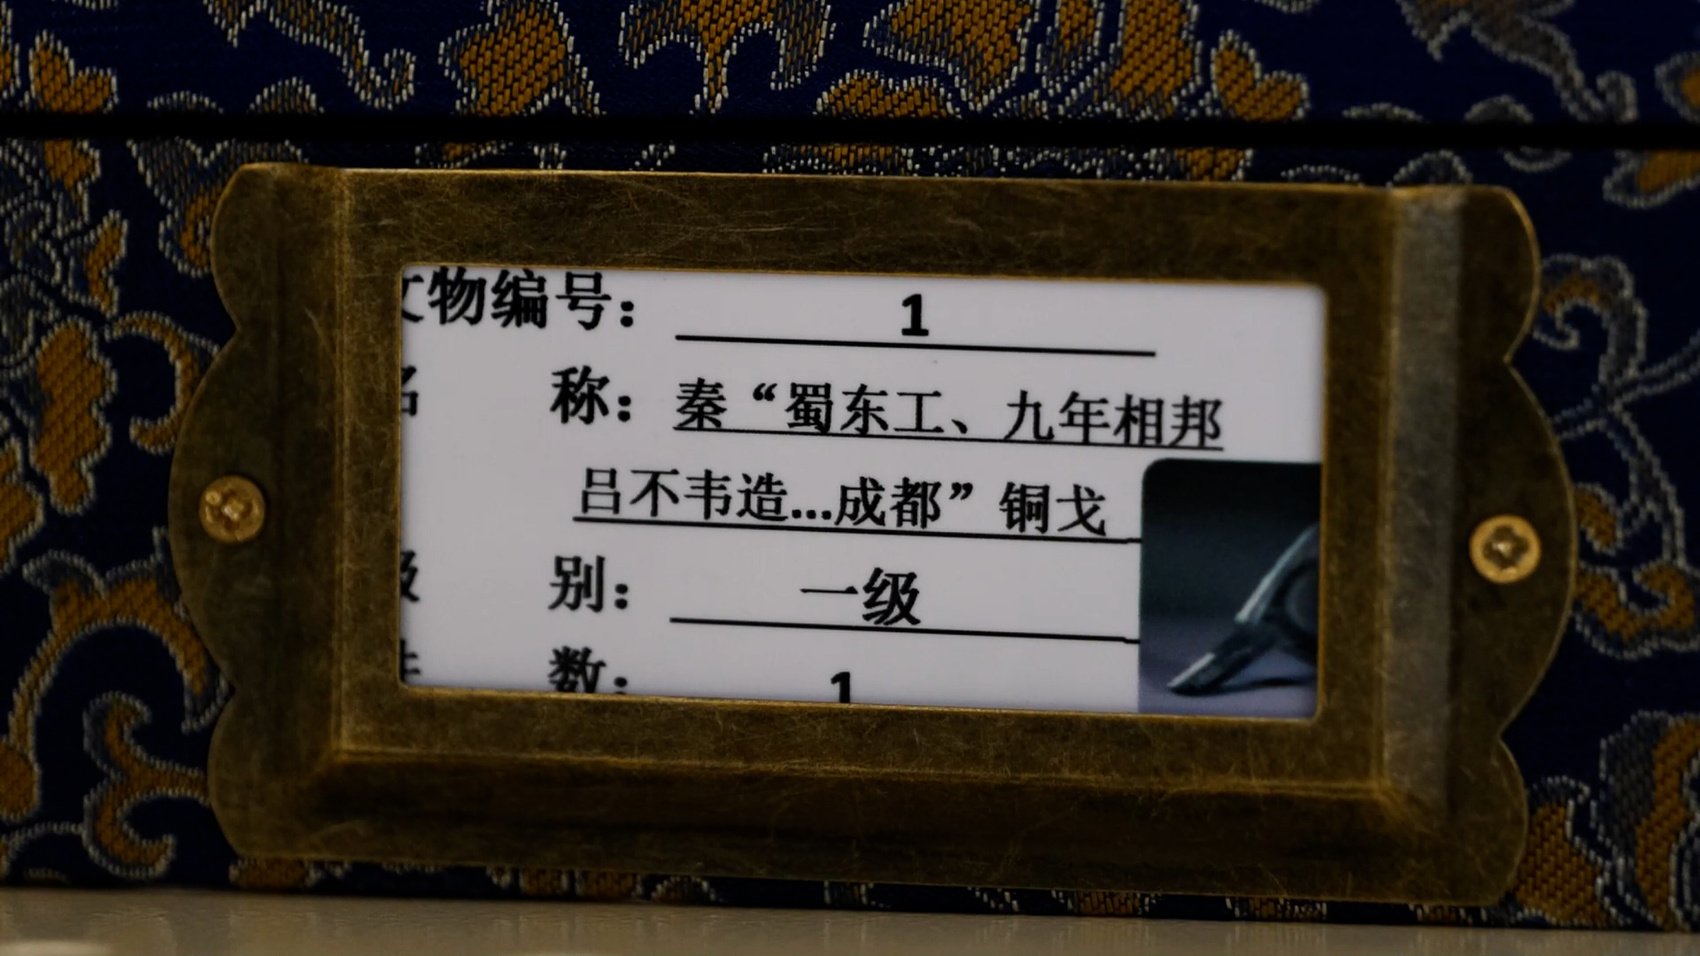 文物编号： 1
名 称：秦“蜀东工、九年相邦
吕不韦造...成都”铜戈
级 别： 一级
件 数： 1